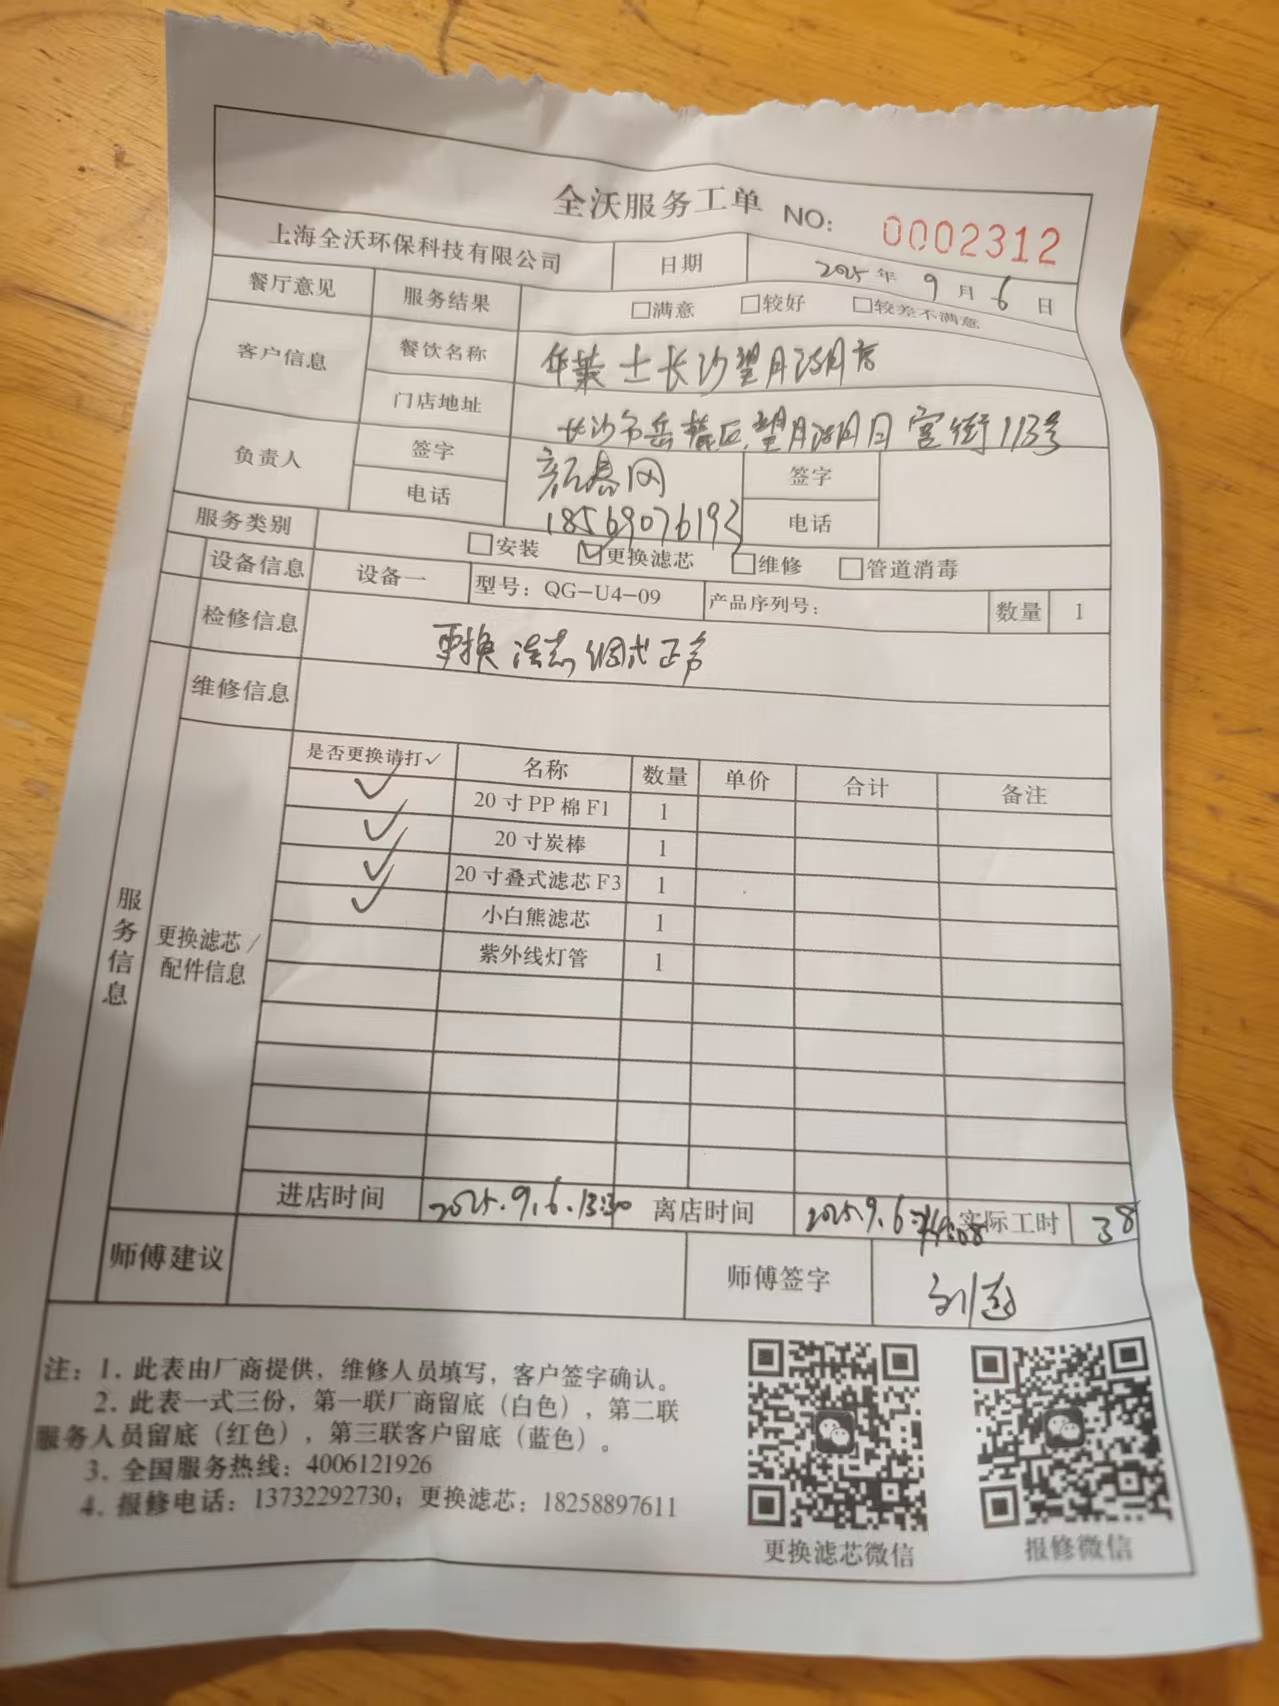 全沃服务工单 NO: 0002312
上海全沃环保科技有限公司 日期 2025年9月6日
餐厅意见 服务结果 □满意 □较好 □较差不满意
客户信息 餐饮名称 华莱士长沙望月湖店
门店地址 长沙市岳麓区望月湖月宫街113号
负责人 签字 签字
电话 18569076193 电话
服务类别 □安装 ☑更换滤芯 □维修 □管道消毒
设备信息 设备一 型号：QG-U4-09 产品序列号： 数量 1
检修信息 更换滤芯,调试正常
维修信息
服务信息
更换滤芯/配件信息
是否更换请打✓ 名称 数量 单价 合计 备注
✓ 20寸PP棉F1 1
✓ 20寸炭棒 1
✓ 20寸叠式滤芯F3 1
✓ 小白熊滤芯 1
紫外线灯管 1
进店时间 2025.9.6.13:30 离店时间 2025.9.6 14:08 实际工时 38
师傅建议 师傅签字
注：1. 此表由厂商提供，维修人员填写，客户签字确认。
2. 此表一式三份，第一联厂商留底（白色），第二联
服务人员留底（红色），第三联客户留底（蓝色）。
3. 全国服务热线：4006121926
4. 报修电话：13732292730；更换滤芯：18258897611
更换滤芯微信 报修微信